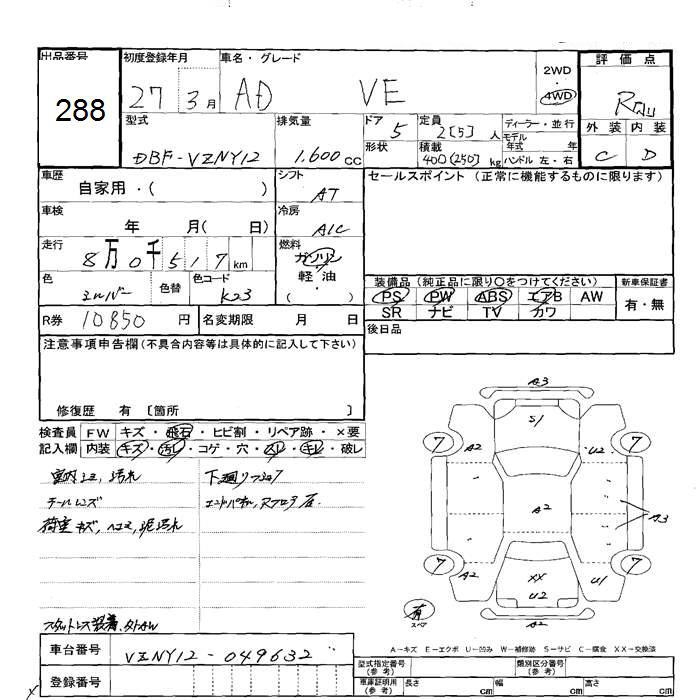 出品番号
288
初度登録年月
27 3月
車名・グレード
AD VE
2WD
4WD
評価点
外装 内装
C D
型式
DBF-VZNY12
排気量
1.600cc
ドア 5
形状
定員 2[5]人
積載 400(250)kg
ディーラー・並行
モデル年式 年
ハンドル 左・右
車歴
自家用・( )
シフト AT
車検
年 月( 日)
冷房 A/C
走行
8万0千517km
燃料
ガソリン
軽・油
( )
色
シルバー
色替
色コード
K23
R券 10850円
名変期限 月 日
セールスポイント (正常に機能するものに限ります)
装備品 (純正品に限り○をつけてください)
PS PW ABS エアB AW
SR ナビ TV カワ
新車保証書
有・無
後日品
注意事項申告欄(不具合内容等は具体的に記入して下さい)
修復歴 有 〔箇所 〕
検査員記入欄
FW キズ・飛石・ヒビ割・リペア跡・×要
内装 キズ・汚レ・コゲ・穴・スレ・キレ・破レ
室内ゴミ、汚れ
テールレンズ
荷室キズ、ヘコミ、泥汚れ
スタットレス装着、
A3
S1
7
7
A2
U2
A2
A3
7
7
A2
XX
U2
U1
A2
有
スペア
A-キズ E-エクボ U-凹み W-補修跡 S-サビ C-腐食 XX-交換済
車台番号 VZNY12-049632
登録番号
型式指定番号(参考)
類別区分番号(参考)
車庫証明用(参考)
長さ cm
幅 cm
高さ cm